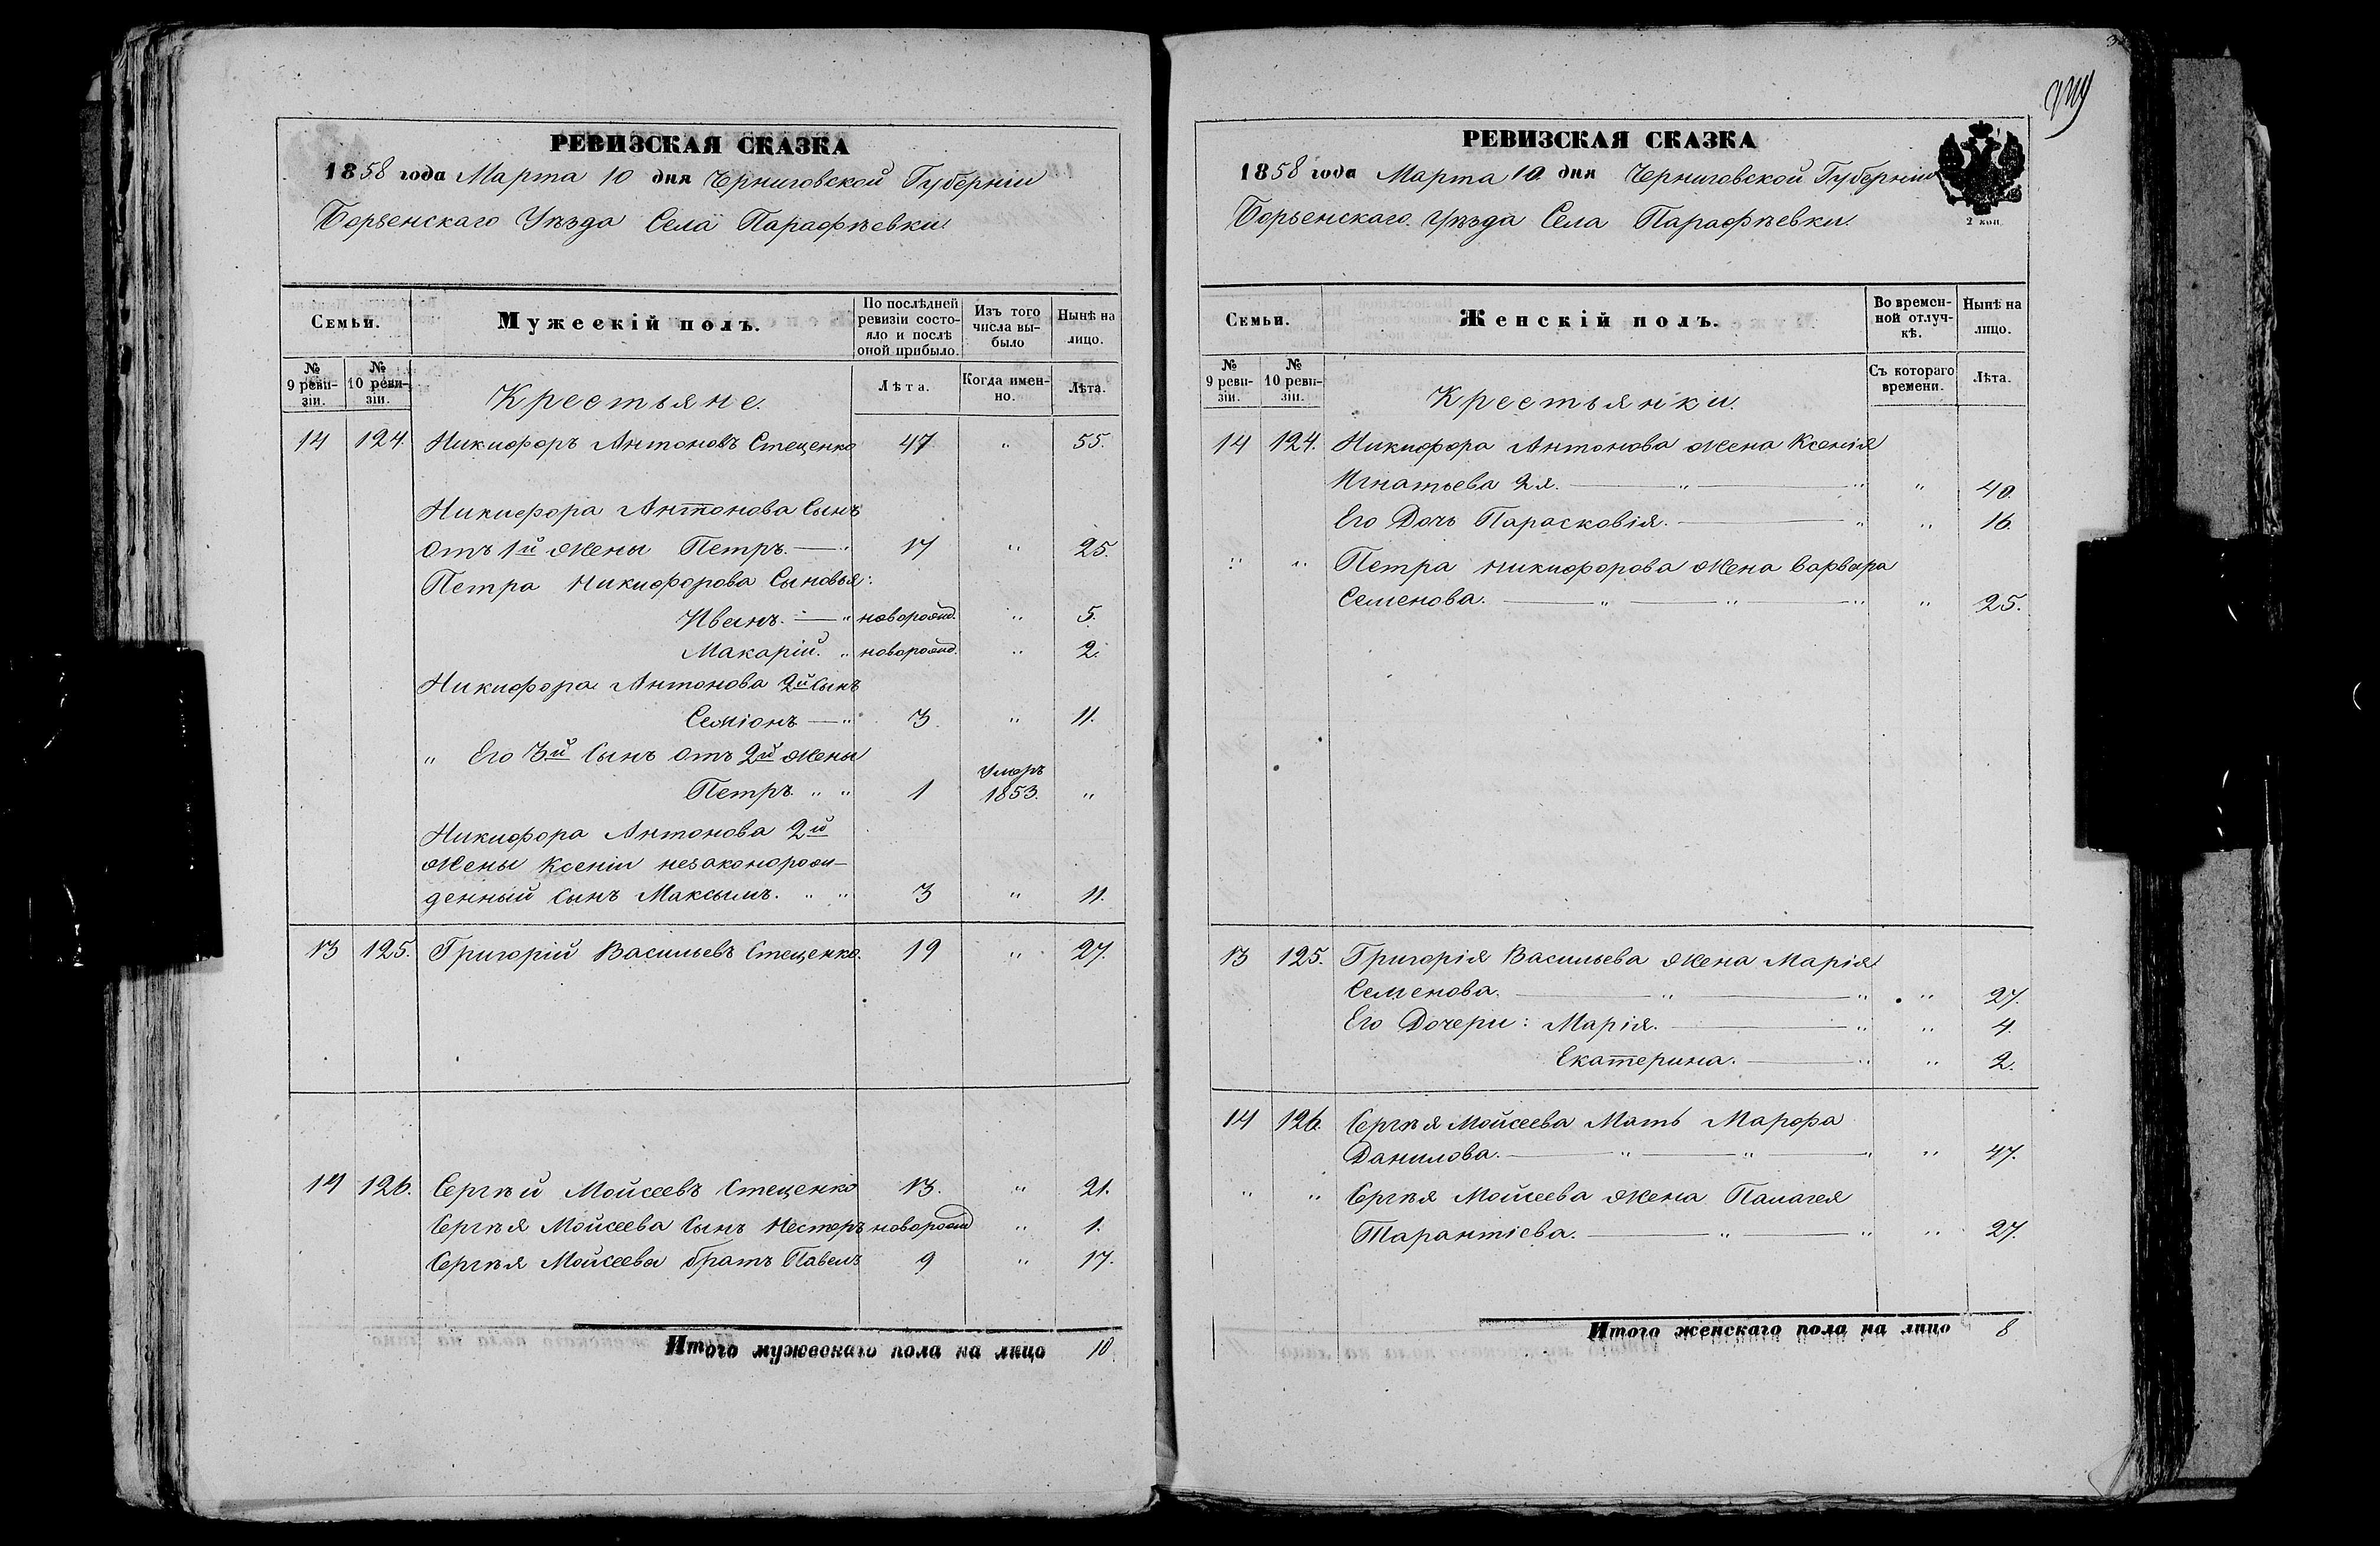 РЕВИЗСКАЯ СКАЗКА
1858 года Марта 10 дня Черниговской Губерніи
Борзенскаго Уѣзда Села Парафѣевки
Семьи.
Мужескій полъ.
По послѣдней ревизіи состояло и послѣ оной прибыло.
Изъ того числа выбыло
Нынѣ на лицо.
№ 9 ревизіи.
№ 10 ревизіи.
Крестьяне.
Лѣта.
Когда именно.
Лѣта.
14 124. Никифоръ Антоновъ Стеценко 47 " 55.
Никифора Антонова Сынъ
отъ 1й жены Петръ. — " 17 " 25.
Петра Никифорова Сыновья:
Иванъ. — " новорожд. " 5.
Макарій. " новорожд. " 2.
Никифора Антонова 2й Сынъ
Семіонъ — " 3. " 11.
" Его 3й Сынъ отъ 2й жены
Петръ. " " 1 умеръ 1853. "
Никифора Антонова 2й
жены Ксеніи незаконорож-
денный Сынъ Максымъ. " " 3 " 11.
13 125. Григорій Васильевъ Стеценко. 19 " 27.
14 126. Сергѣй Мойсеевъ Стеценко 13. " 21.
Сергѣя Мойсеева Сынъ Несторъ новорожд " 1.
Сергѣя Мойсеева братъ Павелъ 9 " 17.
Итого мужескаго пола на лицо 10.
РЕВИЗСКАЯ СКАЗКА
1858 года Марта 10 дня Черниговской Губерніи
Борзенскаго Уѣзда Села Парафѣевки.
2 коп
Семьи.
Женскій полъ.
Во временной отлучкѣ.
Нынѣ на лицо.
№ 9 ревизіи.
№ 10 ревизіи.
Крестьянки.
Съ котораго времени.
Лѣта.
14 124. Никифора Антонова жена Ксенія
Игнатьева 2я. — " — " " 40.
Его Дочь Парасковія. — " " 16.
" " Петра Никифорова жена Варвара
Семенова. — " — " — " " 25.
13 125. Григорія Васильева жена Марія
Семенова. — " — " " 27.
Его Дочери: Марія. — " " 4.
Екатерина. — " " 2.
14 126. Сергѣя Мойсеева Мать Марфа
Данилова. — " — " — " " 47.
" " Сергѣя Мойсеева жена Палагея
Тарантіева. — " — " " 27.
Итого женскаго пола на лицо 8